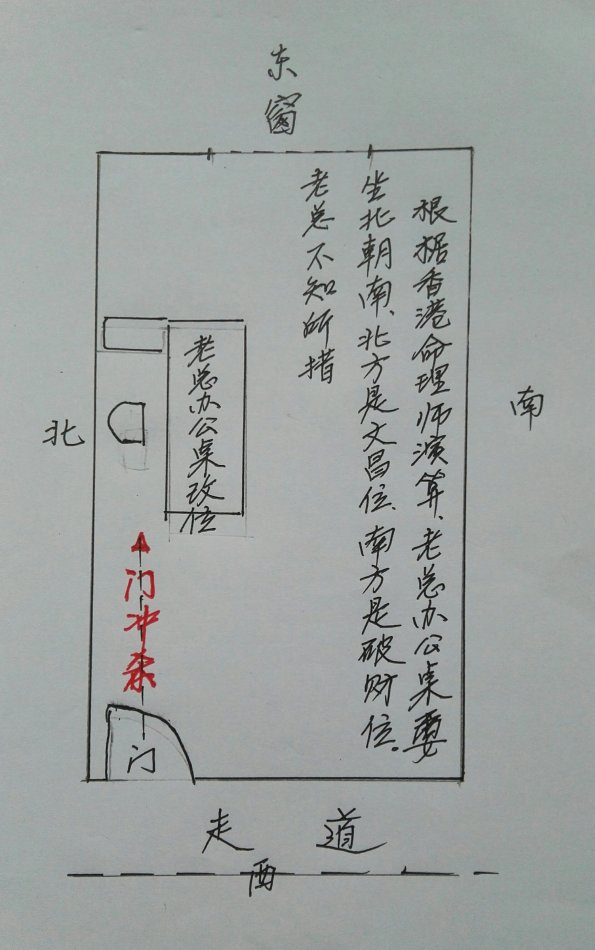 东
窗
根据香港命理师演算、老总办公桌要
坐北朝南、北方是文昌位、南方是破财位。
老总不知所措
老总办公桌玫位
北
南
门冲杀
门
走道
西